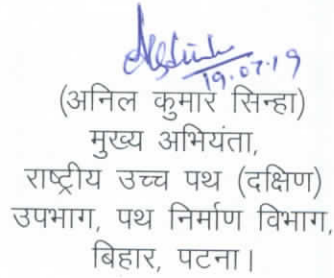 19.07.19
(अनिल कुमार सिन्हा)
मुख्य अभियंता,
राष्ट्रीय उच्च पथ (दक्षिण)
उपभाग, पथ निर्माण विभाग,
बिहार, पटना।